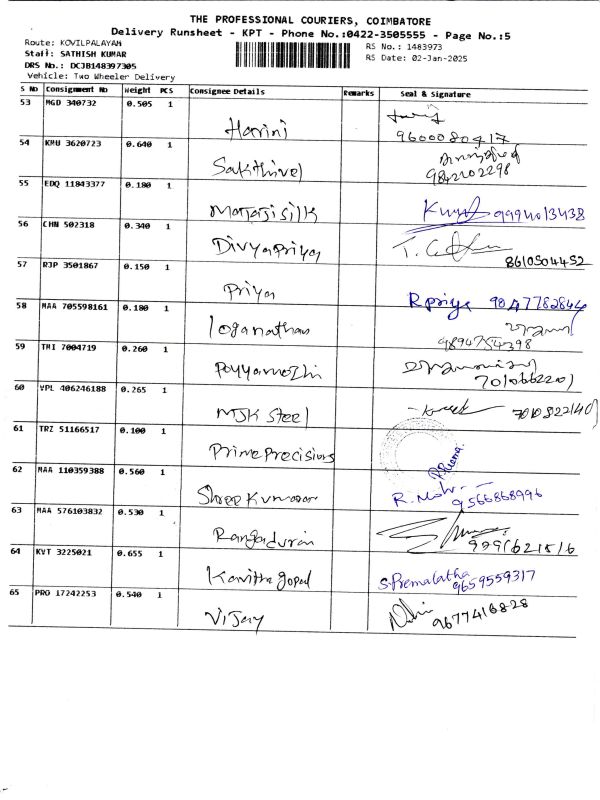 THE PROFESSIONAL COURIERS, COIMBATORE
Delivery Runsheet - KPT - Phone No.:0422-3505555 - Page No.:5
Route: KOVILPALAYAM
RS No.: 1483973
Staff: SATHISH KUMAR
RS Date: 02-Jan-2025
DRS No.: DCJB148397305
Vehicle: Two Wheeler Delivery
S No Consignment No Weight PCS Consignee Details Remarks Seal & Signature
53 MGD 340732 0.505 1
Harini 9600080417
54 KMU 3620723 0.640 1
Sakthivel 9842102298
55 EDQ 11843377 0.180 1
9994013438
56 CHN 502318 0.340 1
Divyapriya
8610504452
57 RJP 3501867 0.150 1
Priya R priya 9047782844
58 MAA 705598161 0.180 1
Loganathan 9894754398
59 TMI 7004719 0.260 1
Poyyamozhi
60 VPL 406246188 0.265 1
MJK Steel
61 TRZ 51166517 0.100 1
Prime Precisions
62 MAA 110359388 0.560 1
Shree Kumaran 9566868996
63 MAA 576103832 0.530 1
Rangaduran
64 KVT 3225021 0.655 1
Kavitha gopal S. Premalatha 9659559317
65 PRO 17242253 0.540 1
Vijay 9677416828